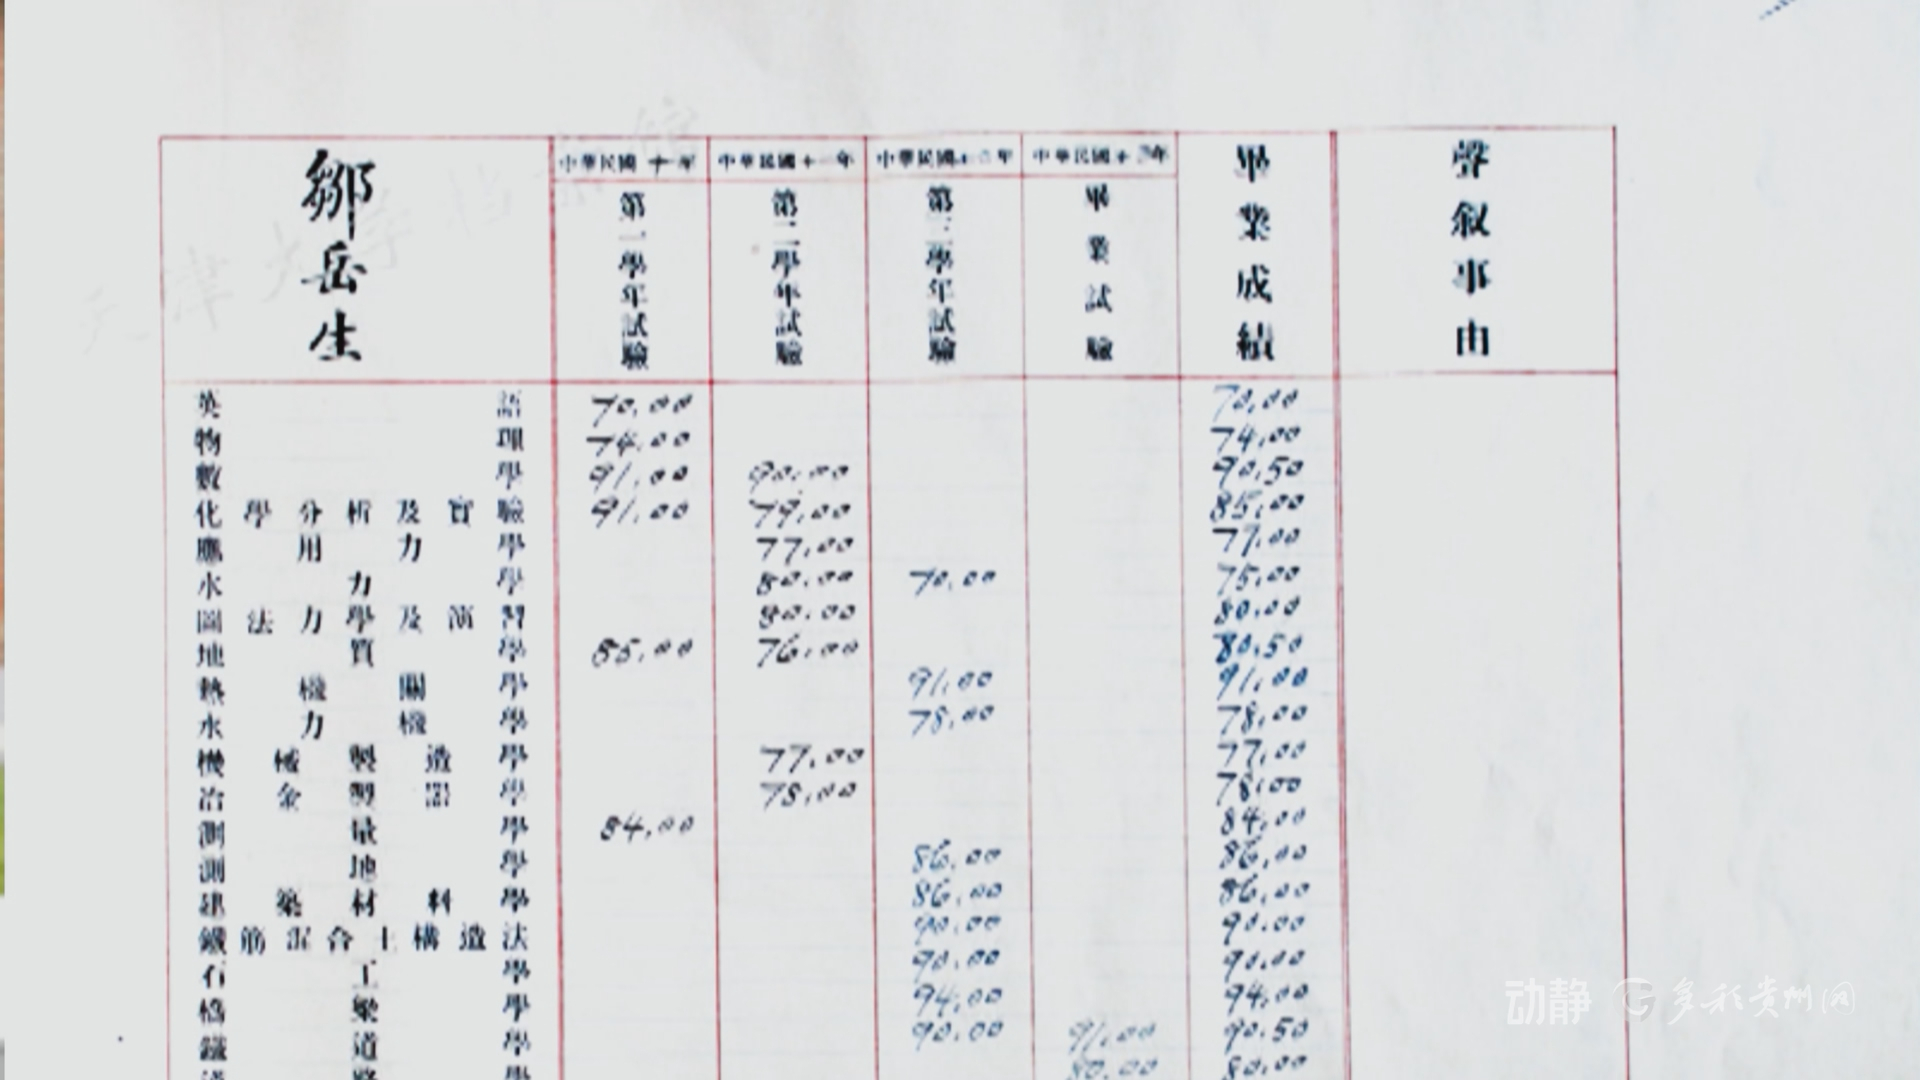 鄒岳生
中華民國 十 年 第一學年試驗
中華民國十一年 第二學年試驗
中華民國十二年 第三學年試驗
中華民國十 年 畢業試驗
畢業成績
聲叙事由
英語 70.00 70.00
物理 74.00 74.00
數學 91.00 90.00 90.50
化學分析及實驗 91.00 79.00 85.00
應用力學 77.00 77.00
水力學 80.00 70.00 75.00
圖法力學及演習 80.00 80.00
地質學 85.00 76.00 80.50
熱機關學 91.00 91.00
水力機學 78.00 78.00
機械製造學 77.00 77.00
冶金製器學 78.00 78.00
測量學 84.00 84.00
測地學 86.00 86.00
建築材料學 86.00 86.00
鐵筋混合土構造法 90.00 90.00
石工學 90.00 90.00
橋梁學 94.00 94.00
鐵道學 90.00 91.00 90.50
道路學 80.00 80.00
天津大学档案馆
动静 多彩贵州网